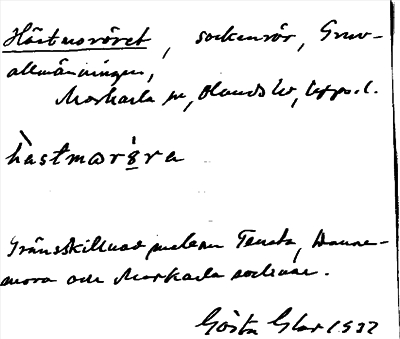 Hästmoröret, sockenrör, Gruv-
allmänningen,
Morkarla sn, Olands hd, Upps. l.
hàstmωrø̀ra
Gränsskillnad mellan Tensta, Danne-
mora och Morkarla socknar.
Gösta Glas 1932